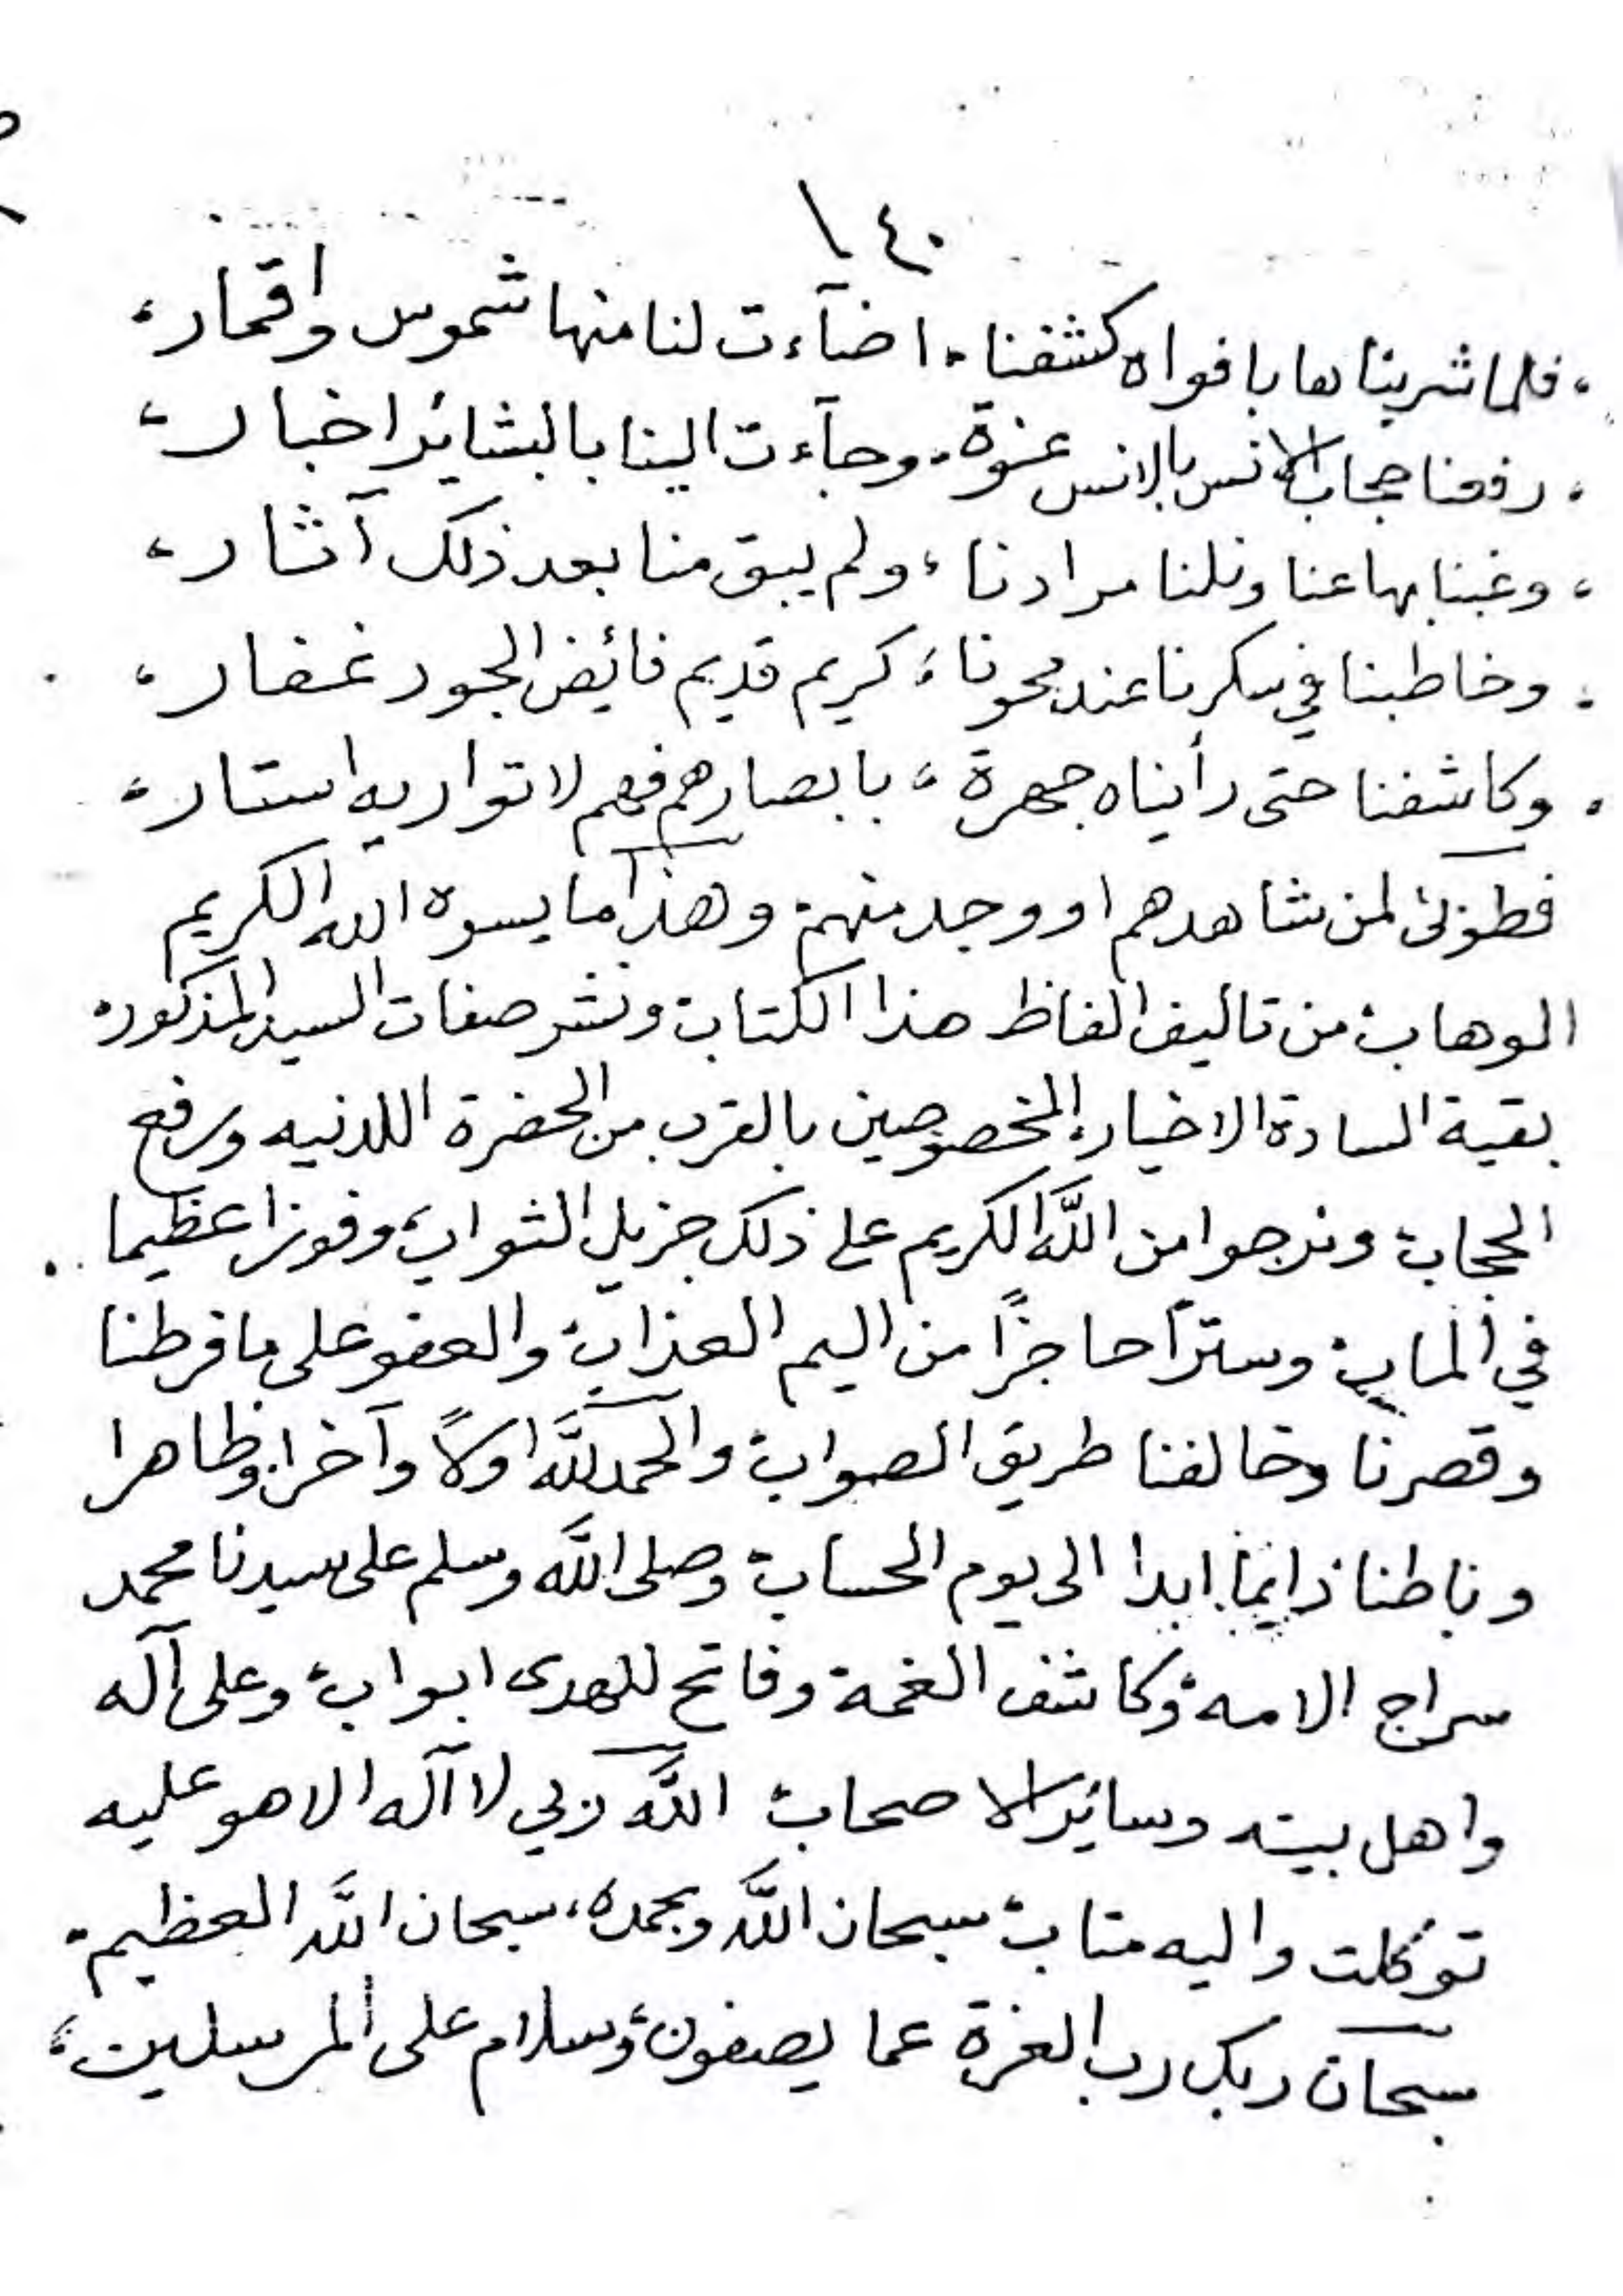 ١٤٠
، فلما شربناها بافواه كشفنا ، اضآءت لنا منها شموس واقمار ،
، رفعنا حجاب الانس بالانس عنوة ، وجآءت الينا بالبشائر اخبار ،
، وغبنا بها عنا ونلنا مرادنا ، ولم يبق منا بعد ذلك آثار ،
، وخاطبنا في سكرنا عند محونا ، كريم قديم فائض الجود غفار ،
، وكاشفنا حتى رأيناه جهرة ، بابصارهم فهم لا تواريه استار ،
فطوبى لمن شاهدهم او وجد منهم وهذا ما يسره الله الكريم
الوهاب من تاليف الفاظ هذا الكتاب ونشر صفات السيد المذكور
بقية السادة الاخيار المخصوصين بالقرب من الحضرة اللدنيه ورفع
الحجاب ونرجوا من اللَّه الكريم على ذلك جزيل الثواب وفوزا عظيما
في المآب وستراً حاجزاً من اليم العذاب والعفو على ما فرطنا
وقصرنا وخالفنا طريق الصواب والحمد للَّه اولاً وآخرا وظاهرا
وباطنا دايما ابدا الى يوم الحساب وصلى اللَّه وسلم على سيدنا محمد
سراج الامه وكاشف الغمة وفاتح للهدى ابواب وعلى آله
واهل بيته وسائر الاصحاب اللَّه ربي لا آله الا هو عليه
توكلت واليه متاب سبحان اللَّه وبحمده ، سبحان اللَّه العظيم
سبحان ربك رب العزة عما يصفون وسلام على المرسلين ،